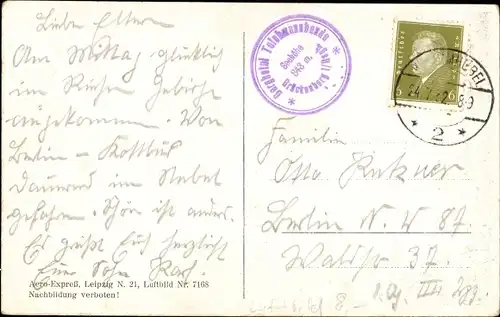 Liebe Eltern
Am Mittag glücklich
im Riesen Gebirge
angekommen. Von
Berlin - Kottbus
dauernd im Nebel
gefahren. Schön ist anders.
Es grüßt Euch herzlich
Euer Sohn Karl.
Aero-Expreß, Leipzig N. 21, Luftbild Nr. 7168
Nachbildung verboten!
Bergheim Teichmannbaude
Seehöhe
843 m.
Brückenberg i/Rsgb
6 6
* 2 *
Familie
Otto
Berlin N. W 87
Waldstr 37.